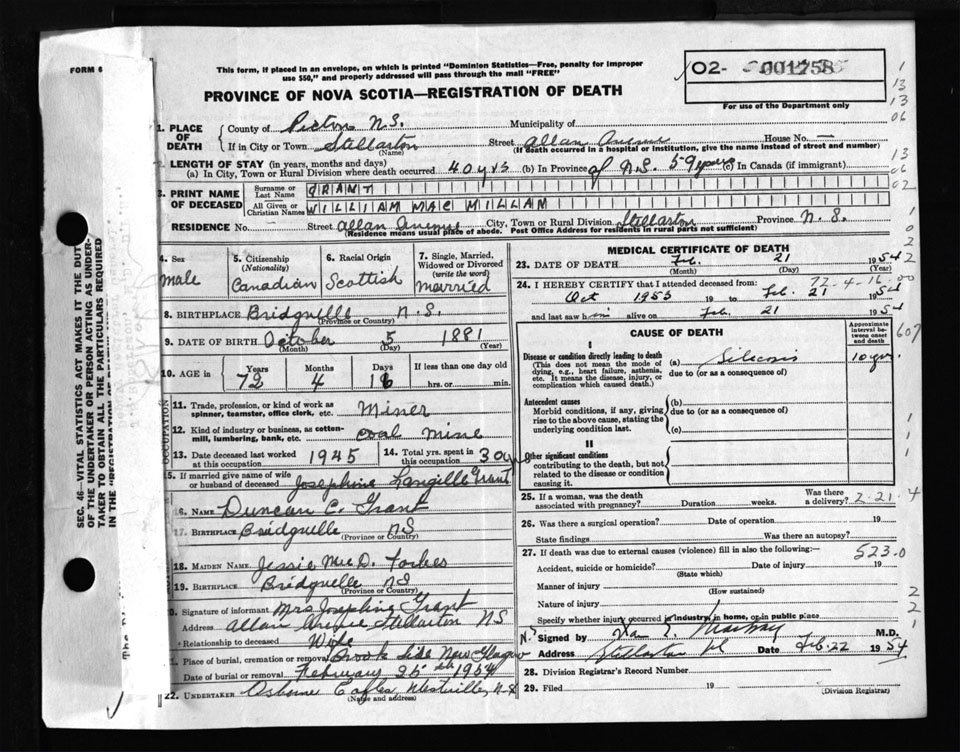 FORM 6
This form, if placed in an envelope, on which is printed "Dominion Statistics—Free, penalty for improper
use $50," and properly addressed will pass through the mail "FREE"
PROVINCE OF NOVA SCOTIA—REGISTRATION OF DEATH
02- 001258
For use of the Department only
1. PLACE OF DEATH
County of Pictou N.S. Municipality of
If in City or Town Stellarton Street Allan Avenue House No. —
(Name) (If death occurred in a hospital or institution, give the name instead of street and number)
LENGTH OF STAY (in years, months and days)
(a) In City, Town or Rural Division where death occurred 40 yrs (b) In Province of N.S. 59 years (c) In Canada (if immigrant)
3. PRINT NAME OF DECEASED
Surname or Last Name GRANT
All Given or Christian Names WILLIAM MACMILLAM
RESIDENCE No. Street Allan Avenue City, Town or Rural Division Stellarton Province N.S.
(Residence means usual place of abode. Post Office Address for residents in rural parts not sufficient)
4. Sex
Male
5. Citizenship (Nationality)
Canadian
6. Racial Origin
Scottish
7. Single, Married, Widowed or Divorced (write the word)
Married
8. BIRTHPLACE Bridgeville N.S.
(Province or Country)
9. DATE OF BIRTH October 5 1881
(Month) (Day) (Year)
10. AGE in Years Months Days If less than one day old
72 4 16 hrs. or min.
OCCUPATION
11. Trade, profession, or kind of work as spinner, teamster, office clerk, etc. Miner
12. Kind of industry or business, as cotton-mill, lumbering, bank, etc. coal mine
13. Date deceased last worked at this occupation 1945
14. Total yrs. spent in this occupation 30
5. If married give name of wife or husband of deceased Josephine Langille Grant
16. NAME Duncan C. Grant
17. BIRTHPLACE Bridgeville NS
(Province or Country)
18. MAIDEN NAME Jessie McD. Forbes
19. BIRTHPLACE Bridgeville NS
(Province or Country)
0. Signature of informant Mrs Josephine Grant
Address Allan Avenue Stellarton NS
Relationship to deceased Wife
Place of burial, cremation or removal Brook Side New Glasgow
Date of burial or removal February 25th 1954
22. UNDERTAKER Osborne Eagles, Westville, N.S
(Name and address)
SEC. 46—VITAL STATISTICS ACT MAKES IT THE DUTY
OF THE UNDERTAKER OR PERSON ACTING AS UNDER-
TAKER TO OBTAIN ALL THE PARTICULARS REQUIRED
MEDICAL CERTIFICATE OF DEATH
23. DATE OF DEATH Feb. 21 1954
(Month) (Day) (Year)
72-4-16
24. I HEREBY CERTIFY that I attended deceased from:
Oct 1953 19 to Feb. 21 1954
and last saw him alive on Feb. 21 1954
CAUSE OF DEATH
Approximate interval between onset and death
I
Disease or condition directly leading to death (a) Silicosis 10 yrs.
(This does not mean the mode of dying, e.g., heart failure, asthenia, etc. It means the disease, injury, or complication which caused death.)
due to (or as a consequence of)
Antecedent causes (b)
Morbid conditions, if any, giving rise to the above cause, stating the underlying condition last.
due to (or as a consequence of)
(c)
II
Other significant conditions contributing to the death, but not related to the disease or condition causing it.
25. If a woman, was the death associated with pregnancy? Duration weeks. Was there a delivery? 2-21-4
26. Was there a surgical operation? Date of operation 19
State findings Was there an autopsy?
27. If death was due to external causes (violence) fill in also the following:— 523.0
Accident, suicide or homicide? Date of injury 19
(State which)
Manner of injury
(How sustained)
Nature of injury
Specify whether injury occurred in industry, in home, or in public place
Signed by M.D.
Address Stellarton Date Feb. 22 1954
28. Division Registrar's Record Number
29. Filed 19
(Division Registrar)